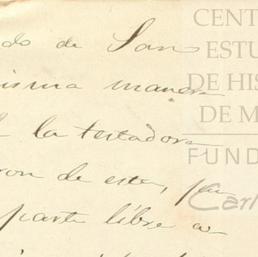 do de San
misma manera
la testadora
ron de este, pa
parte libre a
CENT
ESTU
DE HIS
DE M
FUND
Carl